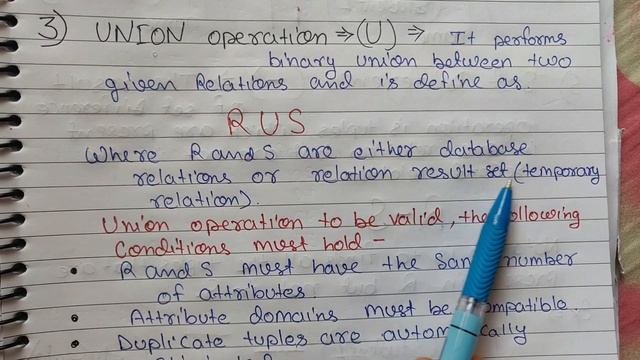 3) UNION operation ⇒ (U) ⇒ It performs
binary union between two
given Relations and is define as.
R U S
Where R and S are either database
relations or relation result set (temporary
relation).
Union operation to be valid, the following
Conditions must hold -
• R and S must have the Same number
of attributes.
• Attribute domains must be compatible.
• Duplicate tuples are automatically